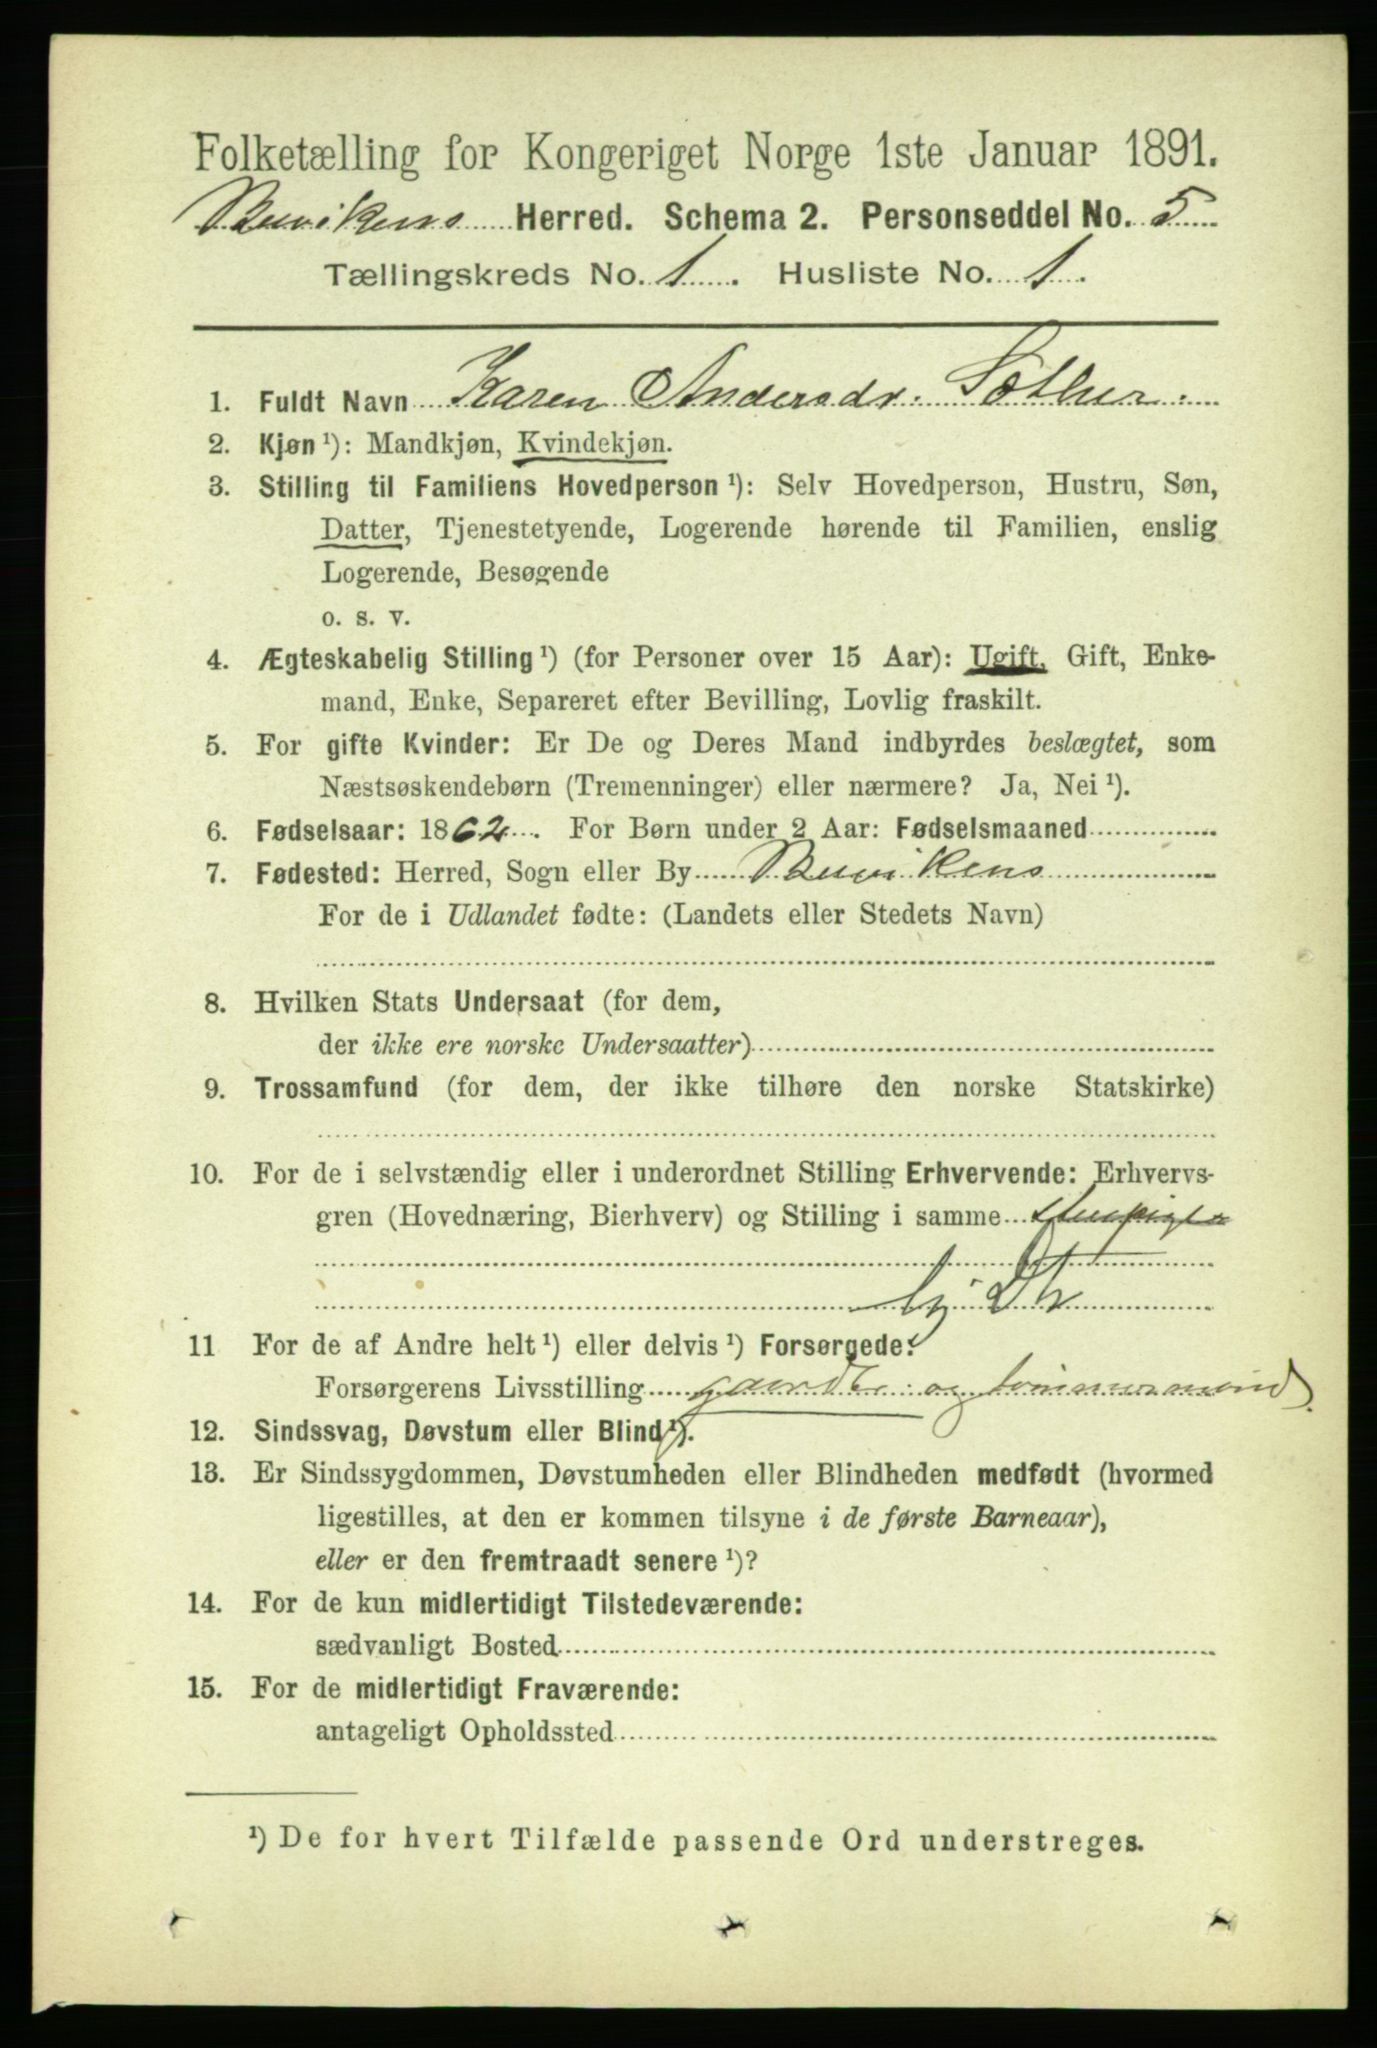 Folketælling for Kongeriget Norge 1ste Januar 1891.
Buvikens Herred. Schema 2. Personseddel No. 5
Tællingskreds No. 1. Husliste No. 1.
1. Fuldt Navn Karen Andersdr. Sæther.
2. Kjøn ¹): Mandkjøn, Kvindekjøn.
3. Stilling til Familiens Hovedperson ¹): Selv Hovedperson, Hustru, Søn,
Datter, Tjenestetyende, Logerende hørende til Familien, enslig
Logerende, Besøgende
o. s. v.
4. Ægteskabelig Stilling ¹) (for Personer over 15 Aar): Ugift, Gift, Enke-
mand, Enke, Separeret efter Bevilling, Lovlig fraskilt.
5. For gifte Kvinder: Er De og Deres Mand indbyrdes beslægtet, som
Næstsøskendebørn (Tremenninger) eller nærmere? Ja, Nei ¹).
6. Fødselsaar: 1862. For Børn under 2 Aar: Fødselsmaaned
7. Fødested: Herred, Sogn eller By Buvikens
For de i Udlandet fødte: (Landets eller Stedets Navn)
8. Hvilken Stats Undersaat (for dem,
der ikke ere norske Undersaatter)
9. Trossamfund (for dem, der ikke tilhøre den norske Statskirke)
10. For de i selvstændig eller i underordnet Stilling Erhvervende: Erhvervs-
gren (Hovednæring, Bierhverv) og Stilling i samme
11 For de af Andre helt ¹) eller delvis ¹) Forsørgede:
Forsørgerens Livsstilling gaardbr. og tømmermand
12. Sindssvag, Døvstum eller Blind ¹).
13. Er Sindssygdommen, Døvstumheden eller Blindheden medfødt (hvormed
ligestilles, at den er kommen tilsyne i de første Barneaar),
eller er den fremtraadt senere ¹)?
14. For de kun midlertidigt Tilstedeværende:
sædvanligt Bosted
15. For de midlertidigt Fraværende:
antageligt Opholdssted
¹) De for hvert Tilfælde passende Ord understreges.